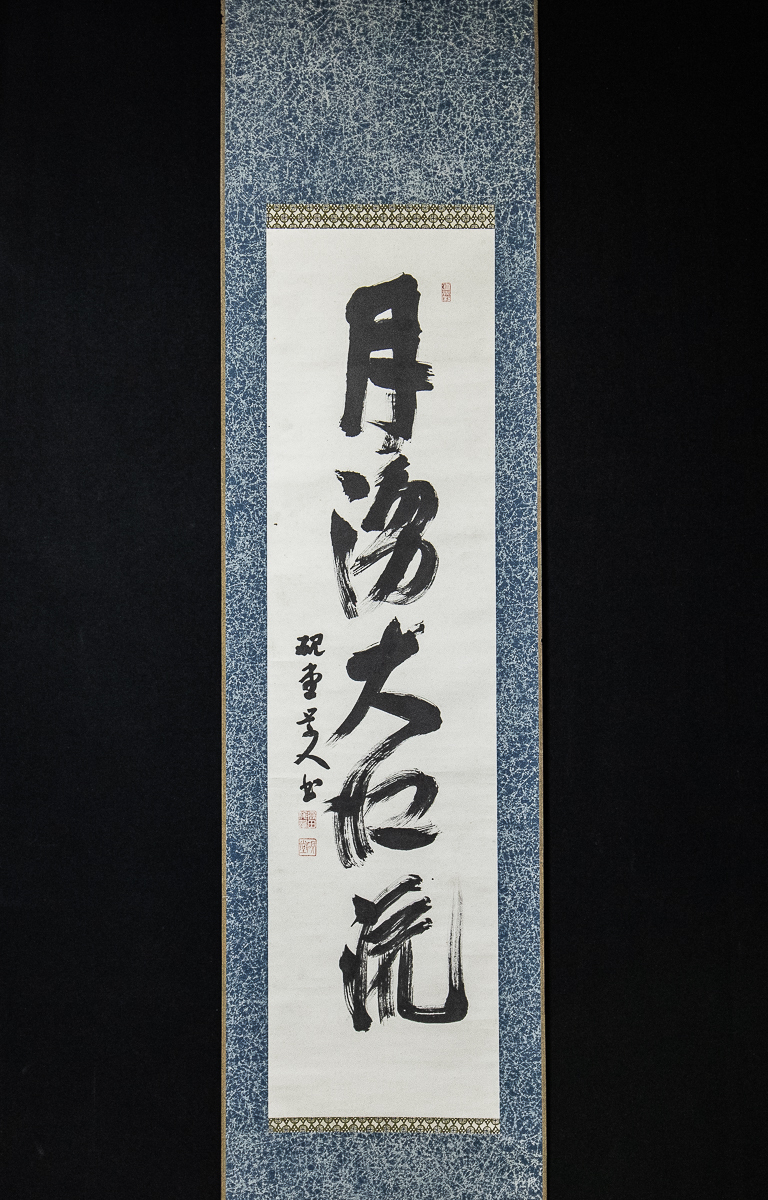 月湧大江流
硯堂山人書